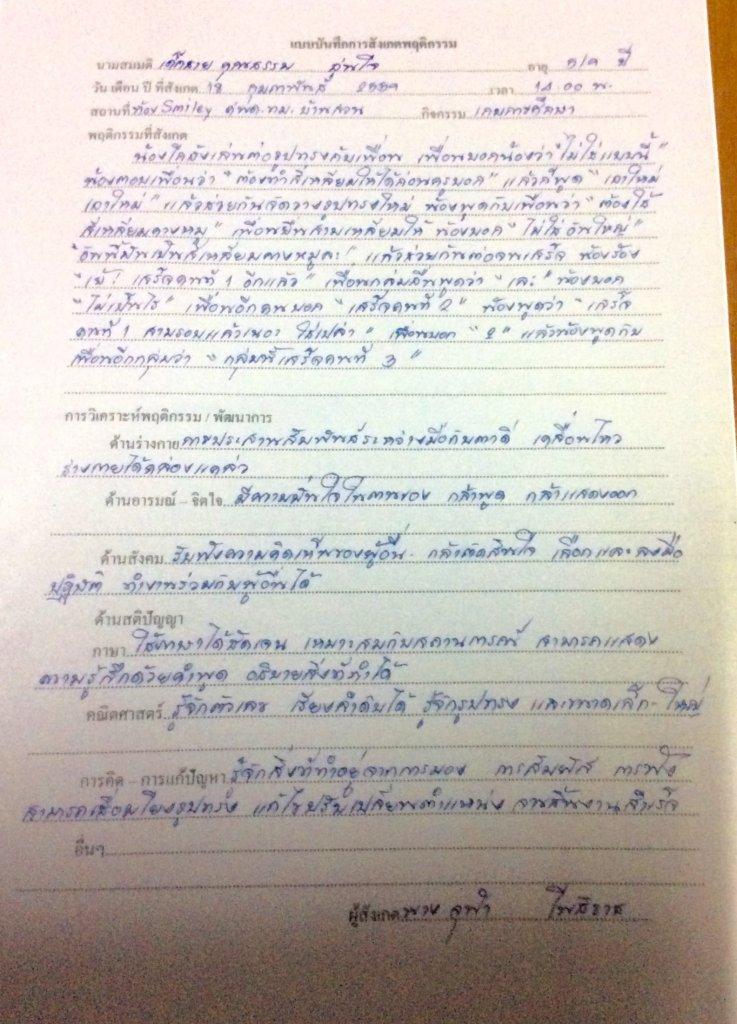 แบบบันทึกการสังเกตพฤติกรรม
นามสมมติ เด็กชาย คุณธรรม อุ่นใจ อายุ ปี
วัน เดือน ปี ที่สังเกต 18 กุมภาพันธ์ เวลา 14.00 น.
สถานที่ ห้อง Smiley ศพด.ทม. บ้านสวน กิจกรรม เกมการศึกษา
พฤติกรรมที่สังเกต
น้องใคล้งเล่นต่อรูปทรงกับเพื่อน เพื่อนบอกน้องว่า "ไม่ใช่แบบนี้"
น้องตอบเพื่อนว่า "ต้องทำสี่เหลี่ยมให้ได้ก่อนครูบอก" แล้วก็พูด "เอาใหม่
เอาใหม่" แล้วช่วยกันจัดวางรูปทรงใหม่ น้องพูดกับเพื่อนว่า "ต้องใช้
สี่เหลี่ยมคางหมู" เพื่อนยื่นสามเหลี่ยมให้ น้องบอก "ไม่ใช่ อันใหญ่"
"อันนี้มันเป็นสี่เหลี่ยมคางหมูคะ" แล้วช่วยกันต่อจนเสร็จ น้องร้อง
"เย้! เสร็จคนที่ 1 อีกแล้ว" เพื่อนกลุ่มอื่นพูดว่า น้องบอก
"ไม่เป็นไร" เพื่อนอีกคนบอก "เสร็จคนที่ 2" น้องพูดว่า "เสร็จ
คนที่ 1 สามรอบแล้วเนอะ ใช่เปล่า" เพื่อนบอก "2" แล้วน้องพูดกับ
เพื่อนอีกกลุ่มว่า "กลุ่มนี้เสร็จคนที่ 3"
การวิเคราะห์พฤติกรรม / พัฒนาการ
ด้านร่างกาย การประสานสัมพันธ์ระหว่างมือกับตาดี เคลื่อนไหว
ร่างกายได้คล่องแคล่ว
ด้านอารมณ์ – จิตใจ มีความมั่นใจในตนเอง กล้าพูด กล้าแสดงออก
ด้านสังคม รับฟังความคิดเห็นของผู้อื่น กล้าตัดสินใจ เลือกและลงมือ
ปฏิบัติ ทำงานร่วมกับผู้อื่นได้
ด้านสติปัญญา
ภาษา ใช้ภาษาได้ชัดเจน เหมาะสมกับสถานการณ์ สามารถแสดง
ความรู้สึกด้วยคำพูด อธิบายสิ่งที่ทำได้
คณิตศาสตร์ รู้จักตัวเลข เรียงลำดับได้ รู้จักรูปทรง และขนาดเล็ก-ใหญ่
การคิด – การแก้ปัญหา รู้จักสิ่งที่ทำอยู่จากการมอง การสัมผัส การฟัง
สามารถเชื่อมโยงรูปทรง แก้ไขปรับเปลี่ยนตำแหน่ง จนชิ้นงานสำเร็จ
อื่นๆ
ผู้สังเกต นาง